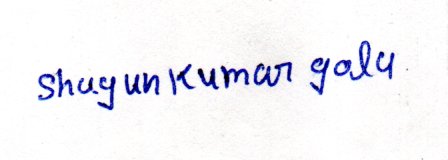 Shagun Kumar gala